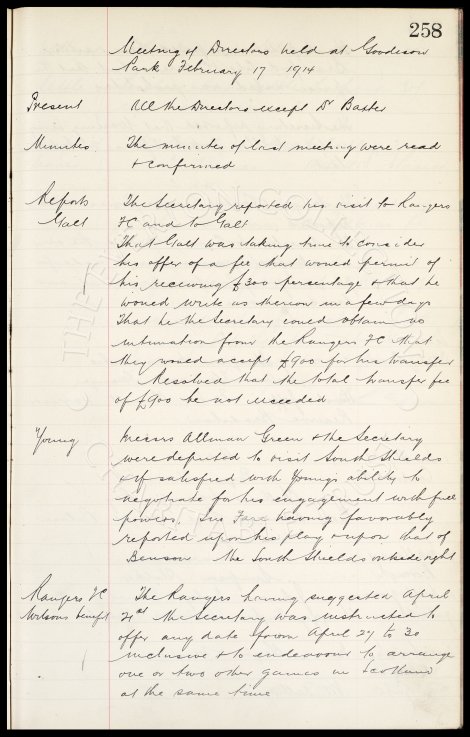 258
Meeting of Directors held at Goodison
Park February 17 1914
Present All the Directors except Dr Baxter
Minutes The minutes of last meeting were read
& confirmed
Reports The Secretary reported his visit to Rangers
Galt FC and to Galt
That Galt was taking time to consider
his offer of a fee that would permit of
his receiving £300 percentage & that he
would write us thereon in a few days
That he the Secretary could obtain no
intimation from the Rangers FC that
they would accept £900 for his transfer
Resolved that the total transfer fee
of £900 be not exceeded
Young Messrs Allman Green & the Secretary
were deputed to visit South Shields
& if satisfied with Youngs ability to
negotiate for his engagement with full
powers. having favorably
reported upon his play & upon that of
Benson the South Shields outside right
Rangers FC The Rangers having suggested April
Wilsons benefit the Secretary was instructed to
offer any date from April 27 to 30
inclusive & to endeavour to arrange
one or two other games in Scotland
at the same time